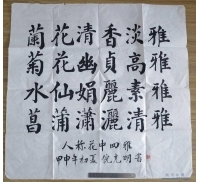 蘭花清香淡雅
菊花幽貞高雅
水仙娟麗素雅
菖蒲瀟灑清雅
人称花中四雅
甲申年初夏光明書